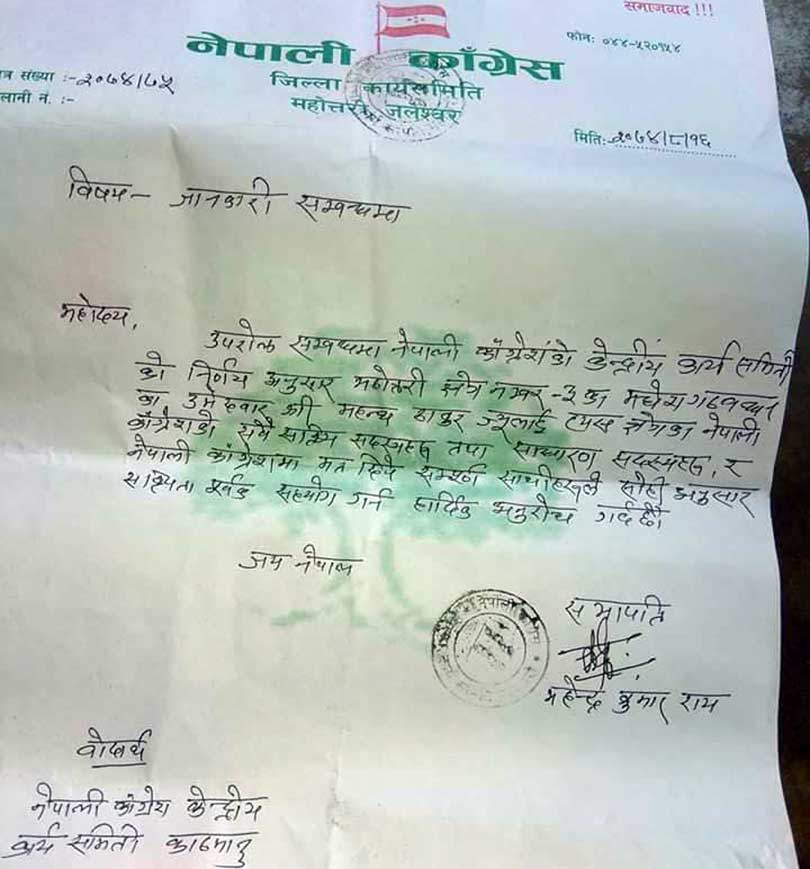 समाजवाद !!!
फोन: ०४४-५२०१५४
नेपाली काँग्रेस
जिल्ला कार्यसमिति
महोत्तरी, जलेश्वर
त्र संख्या :- २०७४/७५
लानी नं. :-
मिति: २०७४/८/१६
विषय- जानकारी सम्वन्धमा
महोदय,
उपरोक्त सम्वन्धमा नेपाली काँग्रेशको केन्द्रीय कार्य समिती
को निर्णय अनुसार महोत्तरी क्षेत्र नम्बर -३ का मधेश गठबन्धन
का उमेदवार श्री महन्थ ठाकुर ज्यूलाई त्यस क्षेत्रका नेपाली
काँग्रेशको सवै सक्रिय सदस्यहरु तथा साधारण सदस्यहरु, र
नेपाली काँग्रेशमा मत दिने सम्पूर्ण साथीहरुले सोही अनुसार
सक्रियता पूर्वक सहयोग गर्न हार्दिक अनुरोध गर्दछौं
जय नेपाल
सभापति
महेन्द्र कुमार राय
वोधार्थ
नेपाली कांग्रेश केन्द्रीय
कार्य समिती काठमान्डु